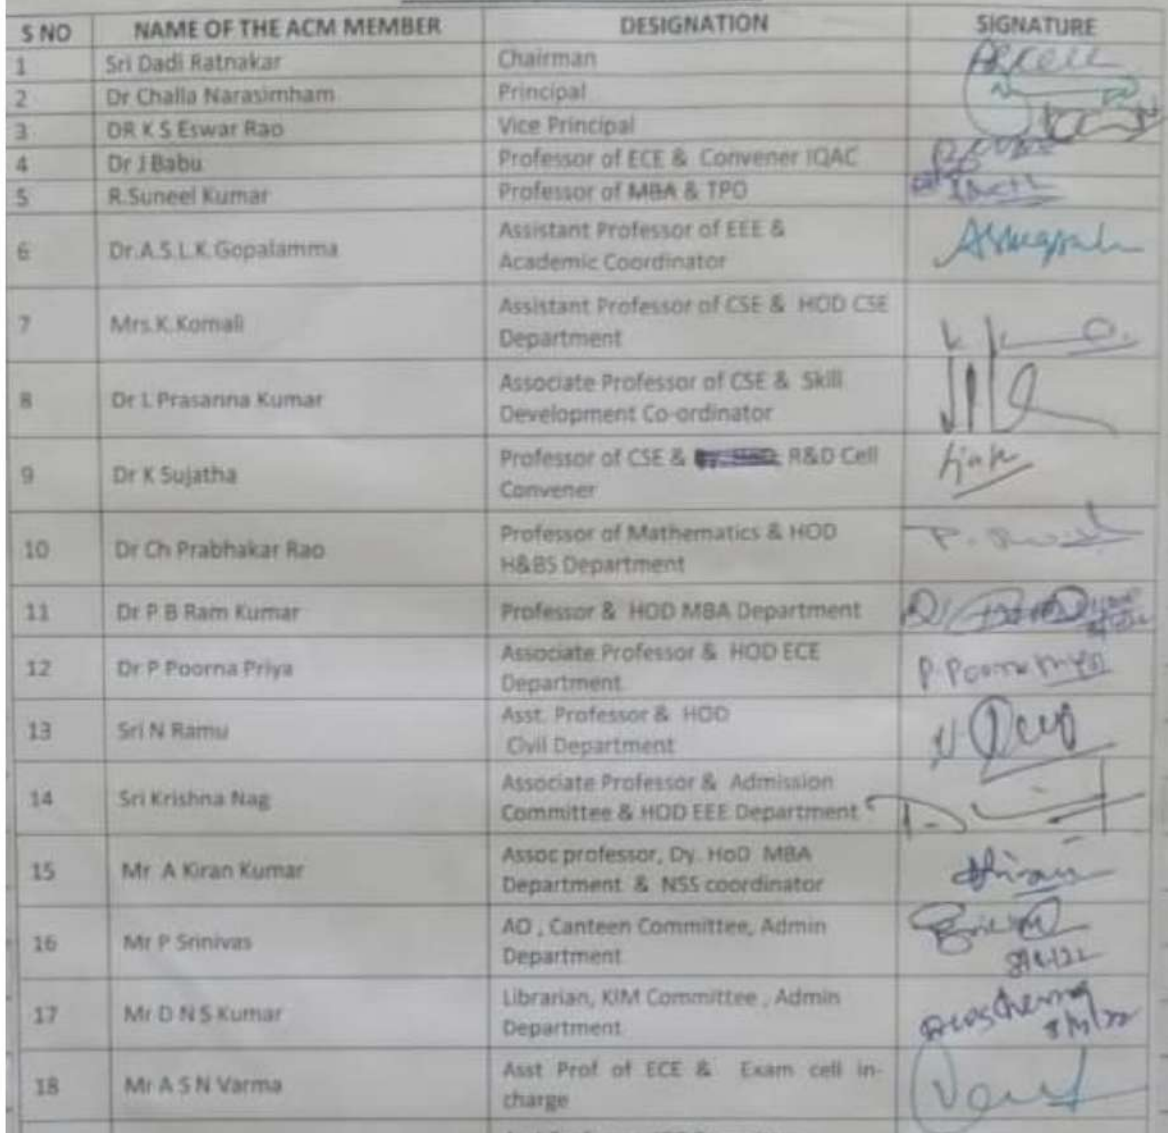 S NO NAME OF THE ACM MEMBER DESIGNATION SIGNATURE
1 Sri Dadi Ratnakar Chairman
2 Dr Challa Narasimham Principal
3 DR K S Eswar Rao Vice Principal
4 Dr J Babu Professor of ECE & Convener IQAC
5 R.Suneel Kumar Professor of MBA & TPO
6 Dr.A.S.L.K.Gopalamma Assistant Professor of EEE &
Academic Coordinator
7 Mrs.K.Komali Assistant Professor of CSE & HOD CSE
Department
8 Dr L Prasanna Kumar Associate Professor of CSE & Skill
Development Co-ordinator
9 Dr K Sujatha Professor of CSE & R&D Cell
Convener
10 Dr Ch Prabhakar Rao Professor of Mathematics & HOD
H&BS Department
11 Dr P B Ram Kumar Professor & HOD MBA Department
12 Dr P Poorna Priya Associate Professor & HOD ECE P. Poorna Priya
Department
13 Sri N Ramu Asst. Professor & HOD
Civil Department
14 Sri Krishna Nag Associate Professor & Admission
Committee & HOD EEE Department
15 Mr A Kiran Kumar Assoc professor, Dy. HoD MBA
Department & NSS coordinator
16 Mr P Srinivas AO , Canteen Committee, Admin
Department
17 Mr D N S Kumar Librarian, KIM Committee , Admin
Department
18 Mr A S N Varma Asst Prof of ECE & Exam cell in-
charge